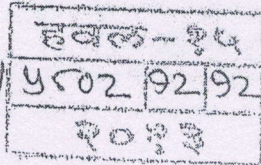 हवल-१५
५८०२ १२ १२
२०१३